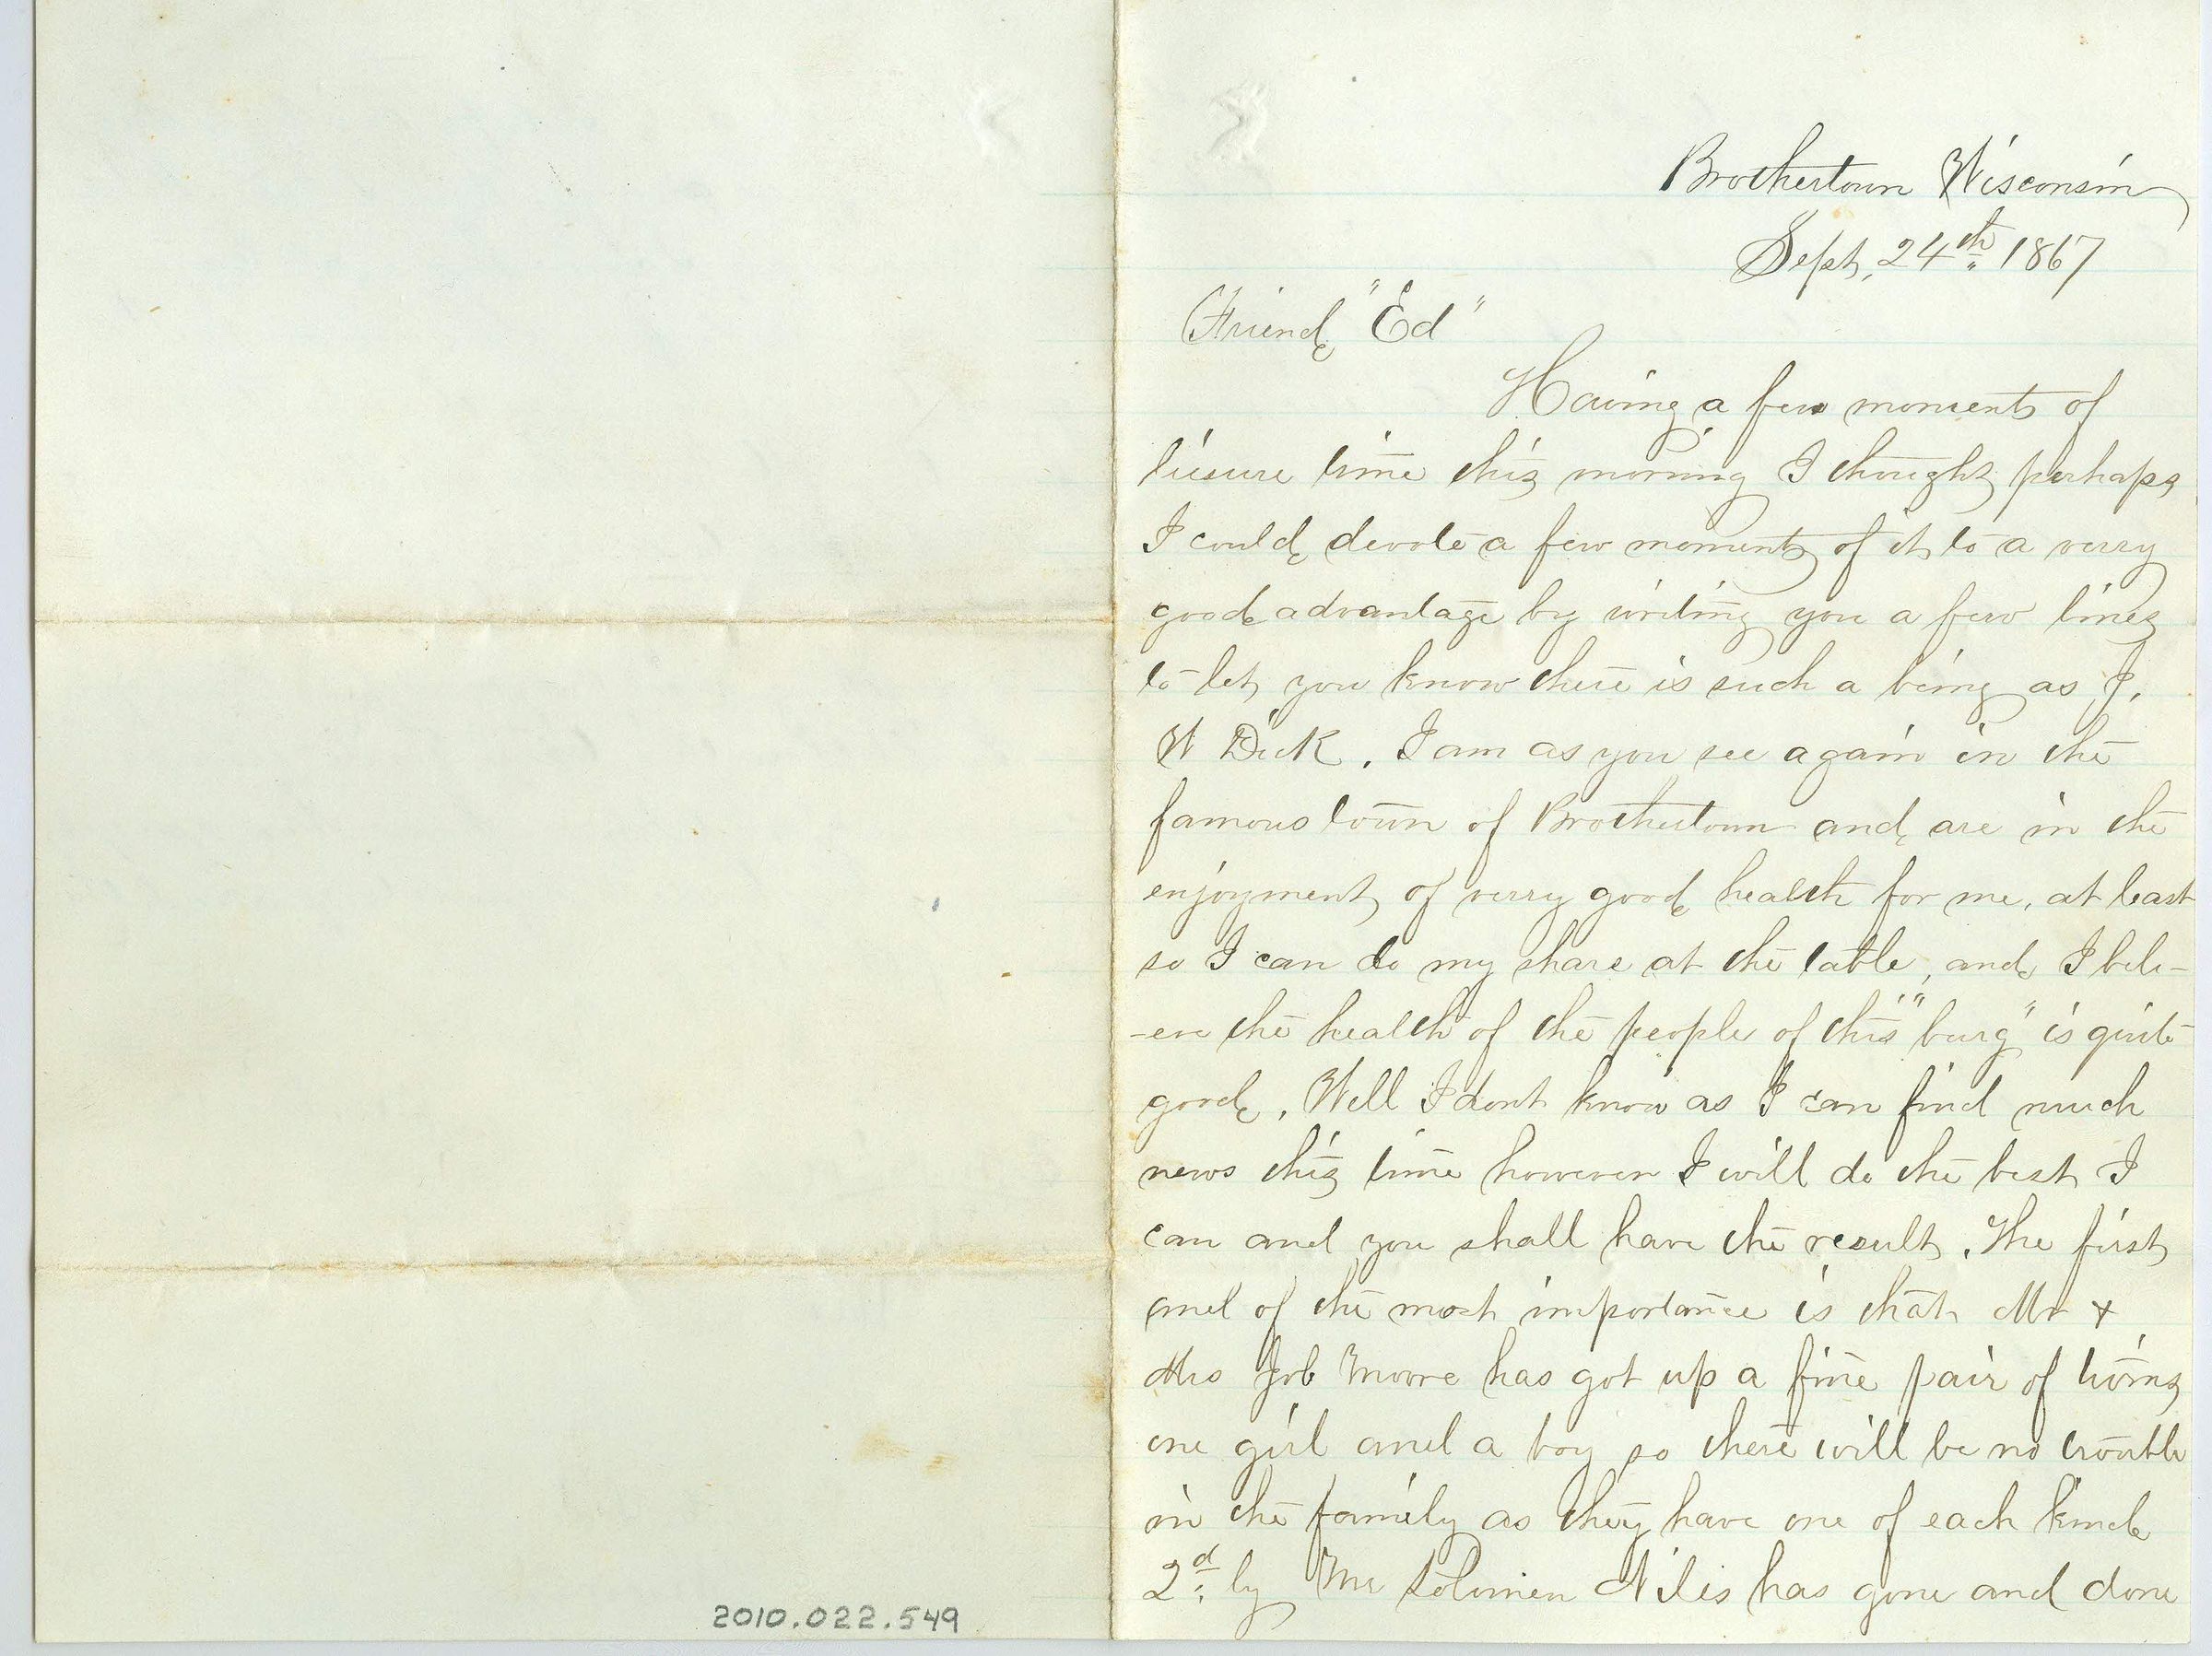 Brothertown Wisconsin
Sept, 24th 1867
Friend "Ed"
Having a few moments of
liesure time this morning I thought perhaps
I could devote a few moments of it to a verry
good advantage by writing you a few lines
to let you know there is such a being as J.
W Dick. I am as you see again in the
famous town of Brothertown and are in the
enjoyment of verry good health for me, at least
so I can do my share at the table, and I beli-
-eve the health of the people of this "burg" is quite
good. Well I dont know as I can find much
news this time however I will do the best I
can and you shall have the result. The first
and of the most importance is that Mr &
Mrs Job Moore has got up a fine pair of twins
one girl and a boy so there will be no trouble
in the family as they have one of each kind
2d ly Mr Solomen Niles has gone and done
2010.022.549